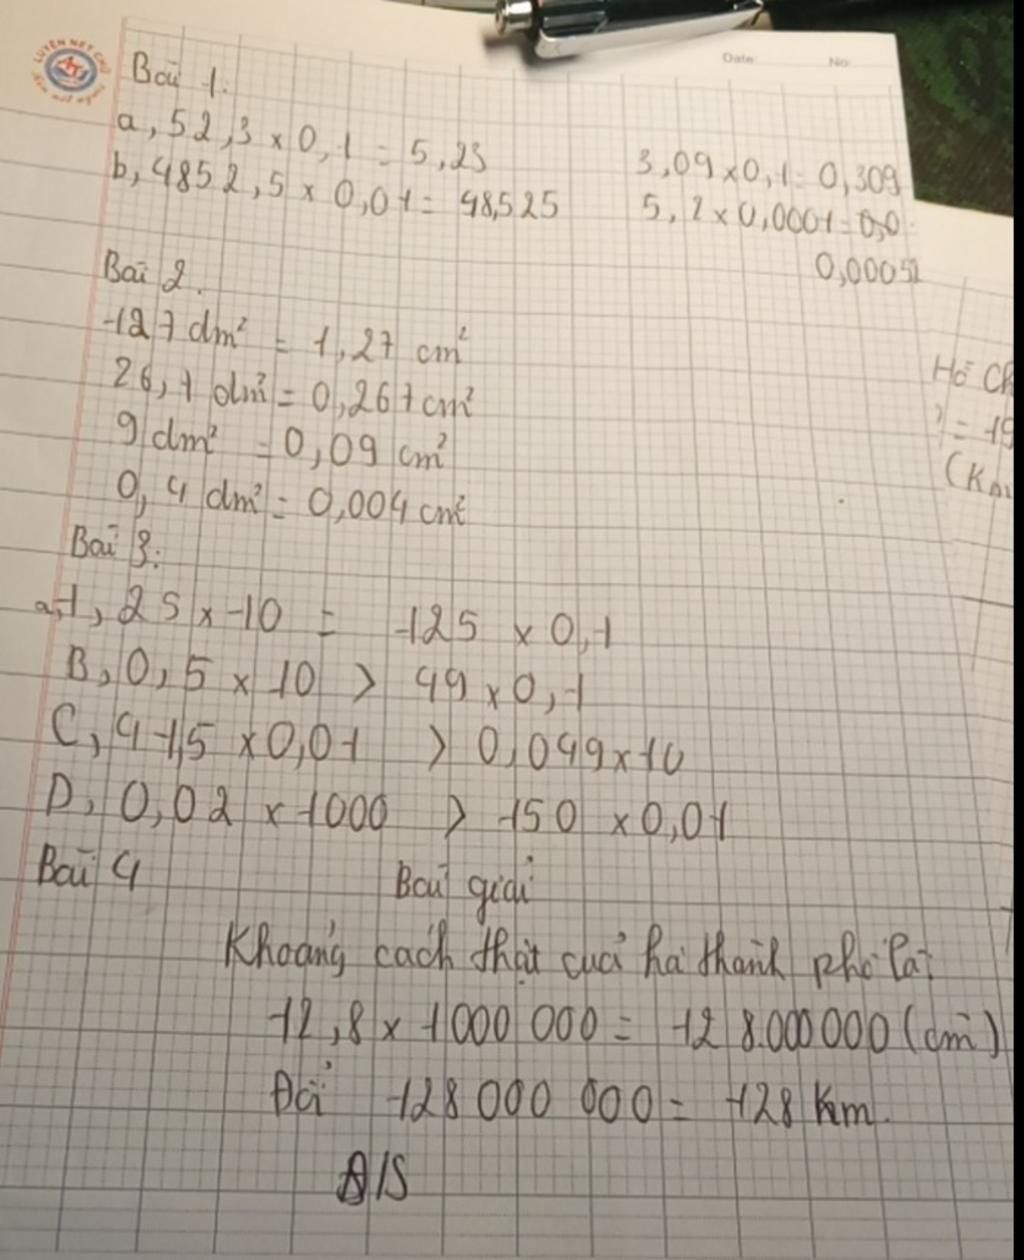 LUYỆN NÉT CHỮ
Date No
Bài 1:
a, 52,3 x 0,1 = 5,23 3,09 x 0,1 = 0,309
b, 4852,5 x 0,01 = 48,525 5,2 x 0,0001 = 0,0
0,00052
Bài 2.
127 dm² = 1,27 cm²
26,7 dm² = 0,267 cm²
9 dm² = 0,09 cm²
0,4 dm² = 0,004 cm²
Bài 3:
a, 1,25 x 10 = 125 x 0,1
B, 0,5 x 10 > 49 x 0,1
C, 4 1,5 x 0,01 > 0,049 x 10
D, 0,02 x 1000 > 150 x 0,01
Bài 4 Bài giải
Khoảng cách thật của hai thành phố là:
12,8 x 1000 000 = 128.000000 (cm)
Đổi 128 000 000 = 128 km.
Đ/S
Hồ Ch
= 19
(Km